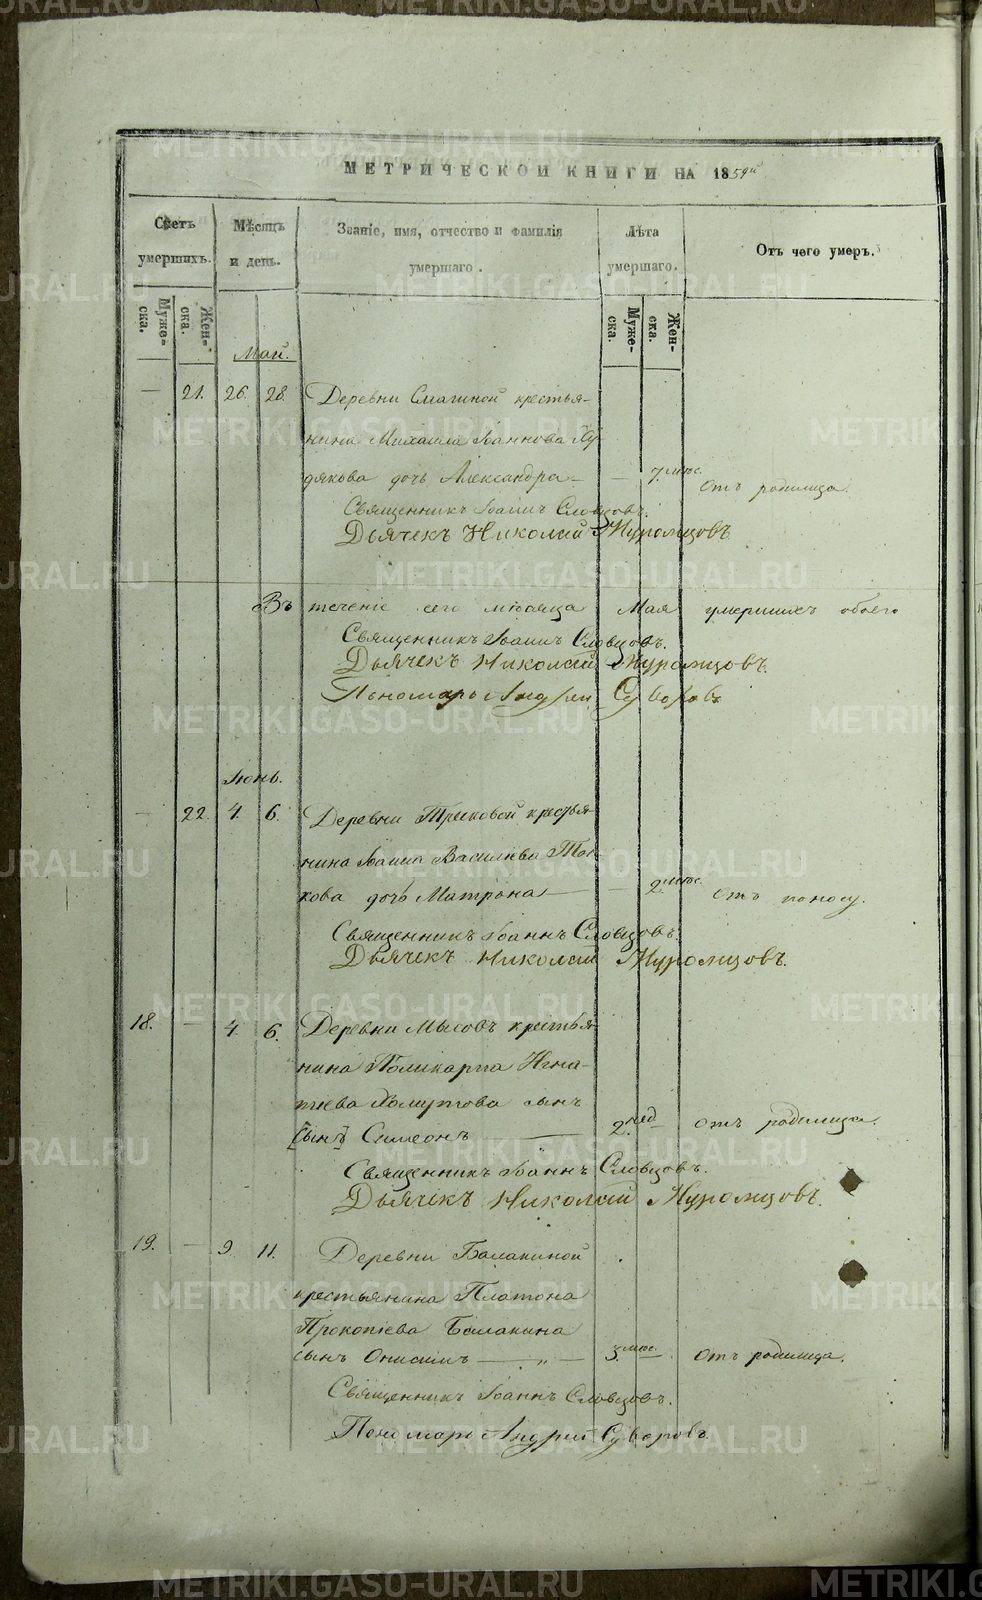 МЕТРИЧЕСКОЙ КНИГИ НА 1859й
Счетъ умершихъ.
Мѣсяцъ и день.
Званіе, имя, отчество и фамилія умершаго.
Лѣта умершаго.
Отъ чего умеръ.
Муже-ска.
Жен-ска.
Муже-ска.
Жен-ска.
Май.
— 21. 26. 28. Деревни Смагиной крестья-
нина Михаила Іоаннова Ху-
дякова дочь Александра — — 7. мѣс. Отъ родимца.
Священникъ Іоаннъ Словцовъ.
Дьячекъ Николай Муромцовъ.
Въ теченіе сего мѣсяца Мая умершихъ обоего
Священникъ Іоаннъ Словцовъ.
Дьячекъ Николай Муромцовъ.
Пономарь Андрей Суворовъ
Іюнь.
— 22. 4. 6. Деревни крестья-
нина Іоанна Василіева
кова дочь Матрона — — 2. мѣс. отъ поносу.
Священникъ Іоаннъ Словцовъ.
Дьячекъ Николай Муромцовъ.
18. — 4. 6. Деревни Мысовъ крестья-
нина Поликарпа Игна-
тіева Хомутова сынъ
[сынъ] Симеонъ — 2. нед отъ родимца.
Священникъ Іоаннъ Словцовъ.
Дьячекъ Николай Муромцовъ.
19. — 9. 11. Деревни Балакиной
крестьянина Платона
Прокопіева Балакина
сынъ Онисимъ — „ — 3. мѣс. Отъ родимца.
Священникъ Іоаннъ Словцовъ.
Пономарь Андрей Суворовъ
METRIKI.GASO-URAL.RU